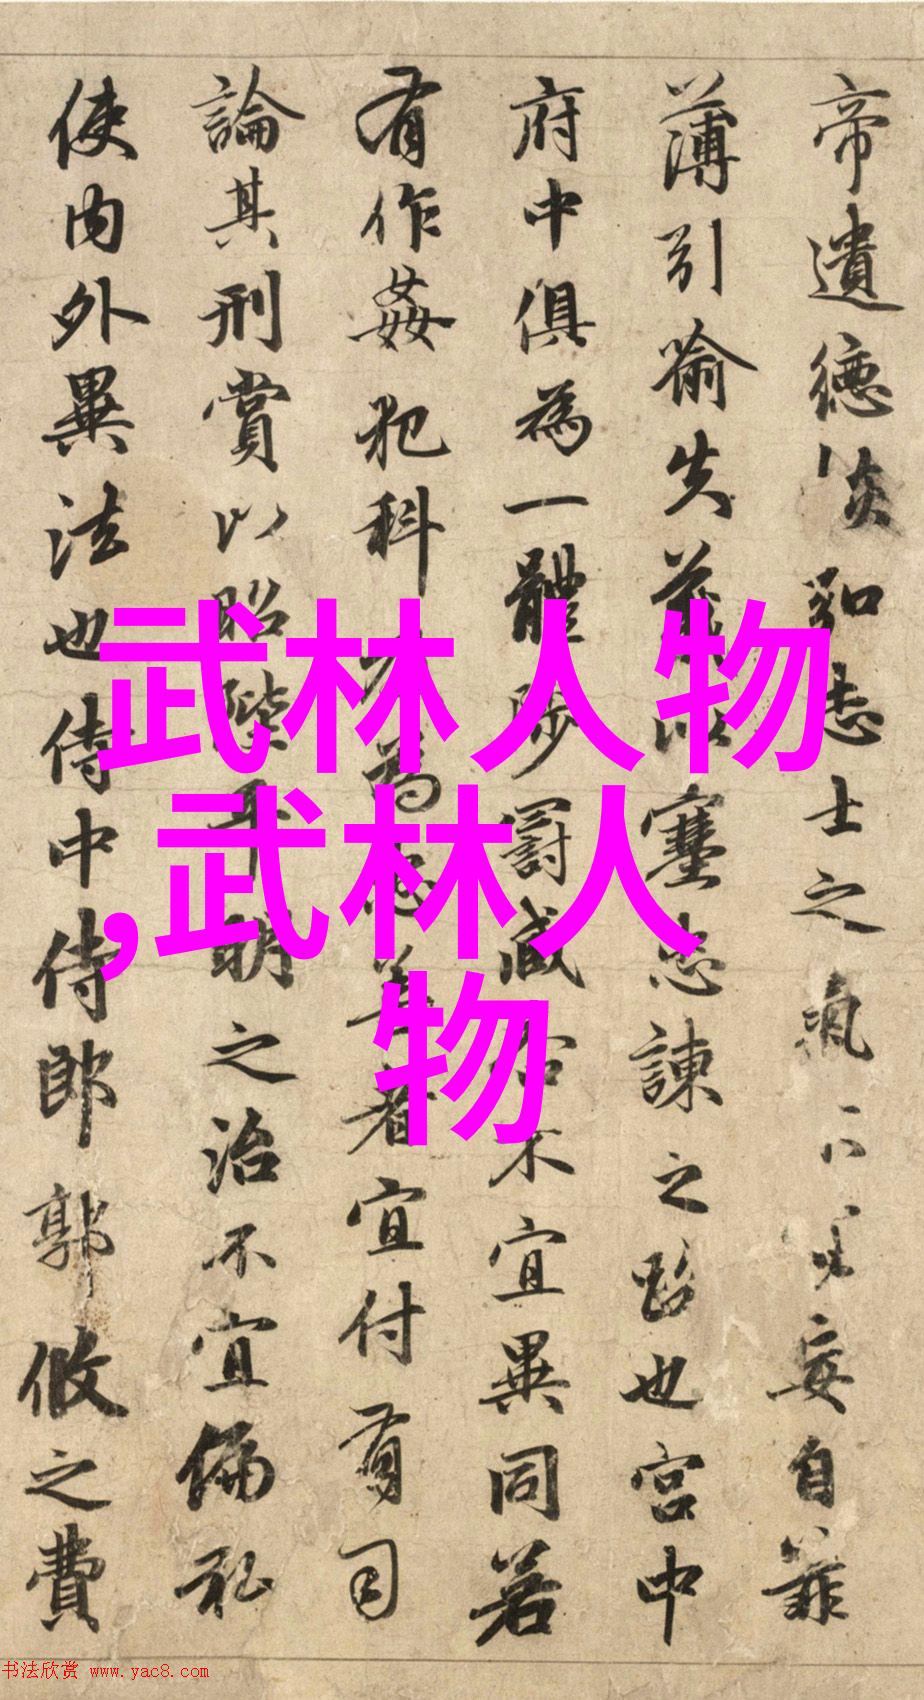 帝遺德恢志士之氣不宜妄自菲
薄引喻失義以塞忠諫之路也宮中
府中俱為一體陟罰臧否不宜異同若
有作姦犯科為忠善者宜付有司
論其刑賞以昭陛平明之治不宜偏私
使内外異法也侍中侍郎郭攸之費
武林人物
,武林人
物
书法欣赏 www.yac8.com